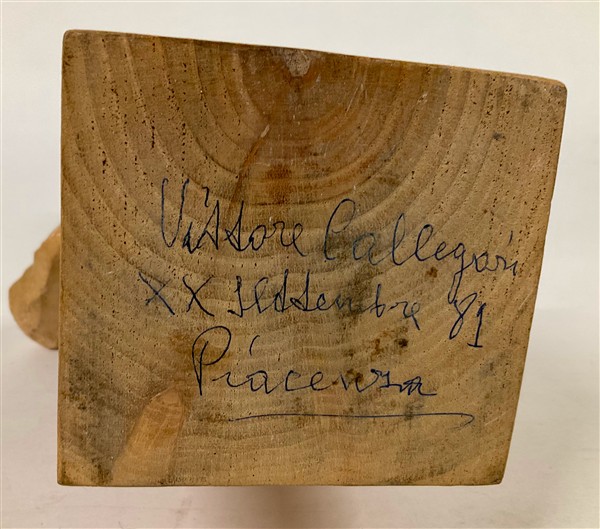 Vittore Callegari
XX settembre 81
Piacenza